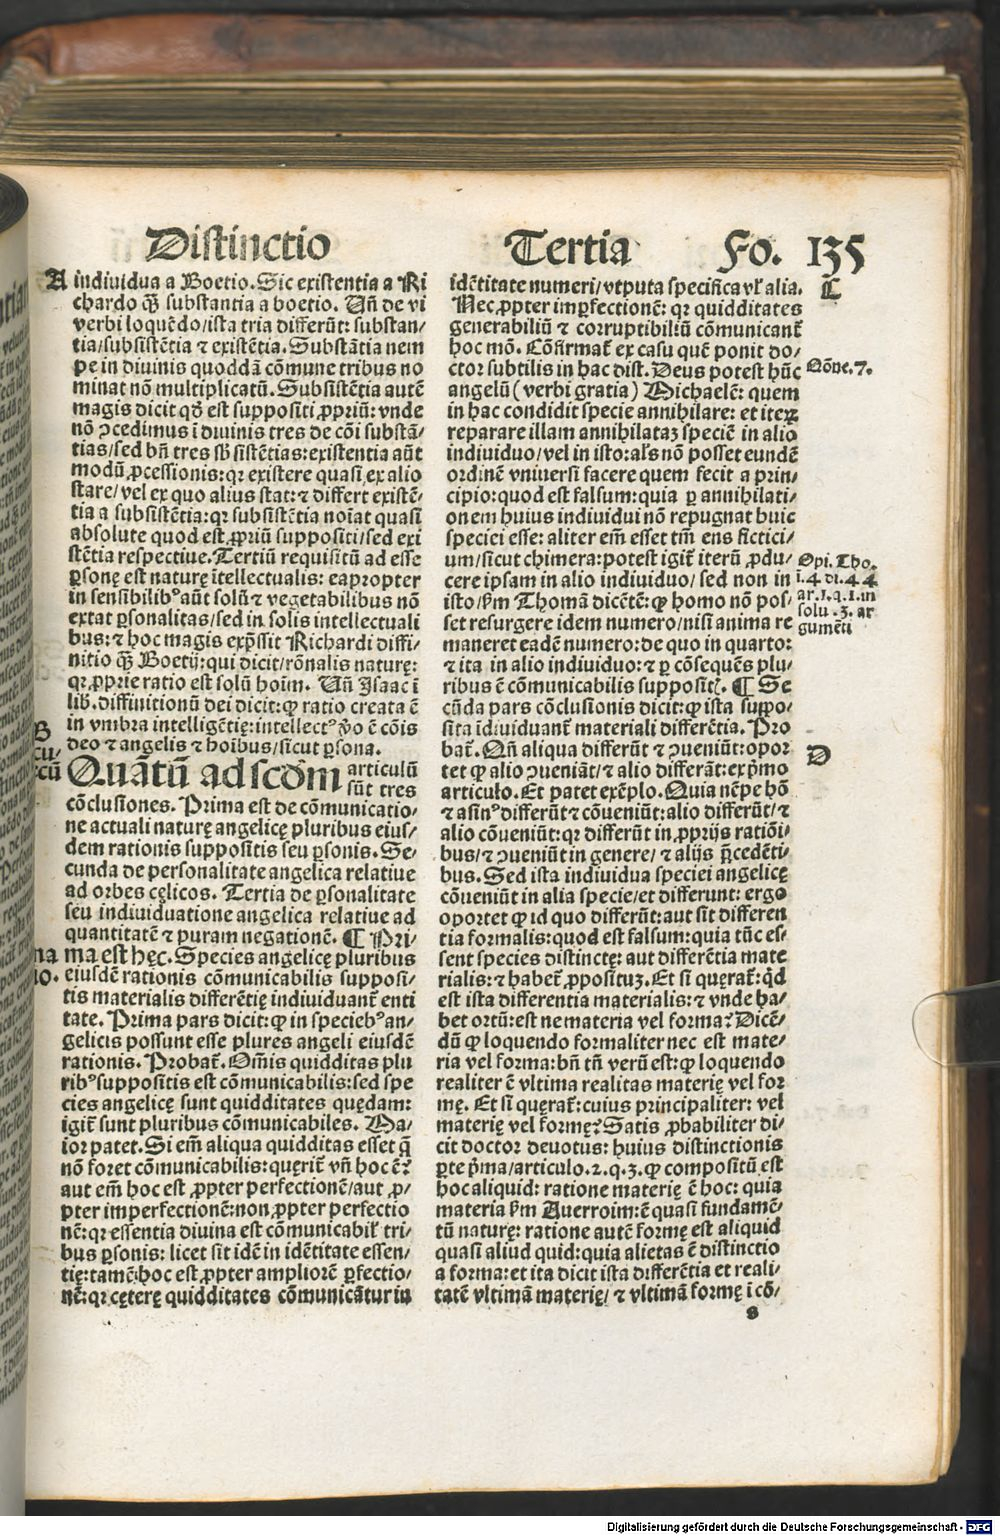 Distinctio
Tertia Fo. 135
A
individua a Boetio. Sic existentia a Ri
chardo qꝫ̃ substantia a boetio. Uñ de vi
verbi loquẽdo/ista tria differũt: substan/
tia/subsistẽtia ⁊ existẽtia. Substãtia nem
pe in divinis quoddã cõmune tribus no
minat nõ multiplicatũ. Subsistẽtia autẽ
magis dicit qð est suppositi ꝓpriũ: vnde
nõ ↄcedimus ĩ divinis tres de cõi substã/
tias/sed bñ tres sb̃sistẽtias: existentia aũt
modũ ꝓcessionis: qꝛ existere quasi ex alio
stare/ vel ex quo alius stat: ⁊ differt existẽ/
tia a subsistẽtia: qꝛ subsistẽtia noĩat quasi
absolute quod est ꝓpriũ suppositi/sed exi
stẽtia respectiue. Tertiũ requisitũ ad esse
ꝑsonę est naturę ĩtellectualis: eapꝛopter
in sensibilibꝰ aũt solũ ⁊ vegetabilibus nõ
extat ꝑsonalitas/sed in solis intellectuali
bus: ⁊ hoc magis expͥssit Richardi diffi/
nitio qꝫ̃ Boetij: qui dicit/rõnalis naturę:
qꝛ ꝓprie ratio est solũ hoĩm. Uñ Isaac ĩ
lib. diffinitionũ dei dicit: ꝙ ratio creata ẽ
in vmbra intelligẽtię: intellectꝰ ꝟo ẽ cõis
deo ⁊ angelis ⁊ hoĩbus/sicut ꝑsona.
Quãtũ ad scõm articulũ
sũt tres
cõclusiones. Prima est de cõmunicatio/
ne actuali naturę angelicę pluribus eius/
dem rationis suppositis seu ꝑsonis. Se/
cunda de personalitate angelica relatiue
ad orbes cęlicos. Tertia de ꝑsonalitate
seu individuatione angelica relatiue ad
quantitatẽ ⁊ puram negationẽ. ¶ Pri/
ma est hęc. Species angelicę pluribus
eiusdẽ rationis cõmunicabilis supposi/
tis materialis differẽtię individuant̃ enti
tate. Prima pars dicit: ꝙ in speciebꝰ an/
gelicis possunt esse plures angeli eiusdẽ
rationis. Probat̃. Om̃is quidditas plu
ribꝰ suppositis est cõmunicabilis: sed spe
cies angelicę sunt quidditates quędam:
igit̃ sunt pluribus cõmunicabiles. Ma/
ior patet. Si em̃ aliqua quidditas esset q̃
nõ foret cõmunicabilis: quęrit̃ vñ hoc ẽ?
aut em̃ hoc est ꝓpter perfectionẽ/aut ꝓ/
pter imperfectionẽ: non ꝓpter perfectio
nẽ: qꝛ essentia divina est cõmunicabil̃ tri/
bus ꝑsonis: licet sit idẽ in idẽtitate essen/
tię: tamẽ hoc est ꝓpter ampliorẽ ꝑfectio/
nẽ: qꝛ cęterę quidditates cõmunicãtur in
idẽtitate numeri/vtputa specifica vl̃ alia.
Nec ꝓpter imꝑfectionẽ: qꝛ quidditates
generabiliũ ⁊ corruptibiliũ cõmunicant̃
hoc mõ. Cõfirmat̃ ex casu quẽ ponit do/
ctor subtilis in hac dist. Deus potest hũc
angelũ (verbi gratia) Michaelẽ: quem
in hac condidit specie annihilare: et iteꝝ
reparare illam annihilataꝫ speciẽ in alio
individuo/vel in isto: al̃s nõ posset eundẽ
ordinẽ vniversi facere quem fecit a prin/
cipio: quod est falsum: quia ꝑ annihilati/
onem huius individui nõ repugnat huic
speciei esse: aliter em̃ esset tm̃ ens fictici/
um/sicut chimera: potest igit̃ iterũ ꝓdu/
cere ipsam in alio individuo/ sed non in
isto/ẜm Thomã dicẽtẽ: ꝙ homo nõ pos/
set resurgere idem numero/nisi anima re
maneret eadẽ numero: de quo in quarto:
⁊ ita in alio individuo: ⁊ ꝑ cõsequẽs plu/
ribus ẽ cõmunicabilis suppositꝭ. ¶ Se
cũda pars cõclusionis dicit: ꝙ ista suppo/
sita ĩdividuant̃ materiali differẽtia. Pro
bat̃. Qñ aliqua differũt ⁊ ↄueniũt: opor
tet ꝙ alio ↄueniãt/⁊ alio differãt: ex pͥmo
articulo. Et patet exẽplo. Quia nẽpe hõ
⁊ asinꝰ differũt ⁊ cõueniũt: alio differũt/⁊
alio cõueniũt: qꝛ differũt in ꝓprijs ratiõi/
bus/⁊ ↄueniũt in genere/⁊ alijs p̃cedẽti/
bus. Sed ista individua speciei angelicę
cõveniũt in alia specie/et differunt: ergo
oportet ꝙ id quo differũt: aut sit differen
tia formalis: quod est falsum: quia tũc es/
sent species distinctę: aut differẽtia mate
rialis: ⁊ habet̃ ꝓpositũ. Et si quęrat̃: qͥd
est ista differentia materialis: ⁊ vnde ha/
bet ortũ: est ne materia vel forma? Dicẽ/
dũ ꝙ loquendo formaliter nec est mate/
ria vel forma: bñ tñ verũ est: ꝙ loquendo
realiter ẽ vltima realitas materię vel for
mę. Et si quęrat̃: cuius principaliter: vel
materię vel formę? Satis ꝓbabiliter di/
cit doctor devotus: huius distinctionis
ꝑte pͥma/articulo.2.q.3.ꝙ compositũ est
hoc aliquid: ratione materię ẽ hoc: quia
materia ẜm Averroim: ẽ quasi fundamẽ/
tũ naturę: ratione autẽ formę est aliquid
quasi aliud quid: quia alietas ẽ distinctio
a forma: et ita dicit ista differẽtia et reali/
tatẽ vltimã materię/ ⁊ vltimã formę ĩ cõ/
s
C
Cõue.7.
Opi. Tho.
i.4 di.44
ar.1.q.1.in
solu.3.ar
gumẽti
D
Digitalisierung gefördert durch die Deutsche Forschungsgemeinschaft - DFG